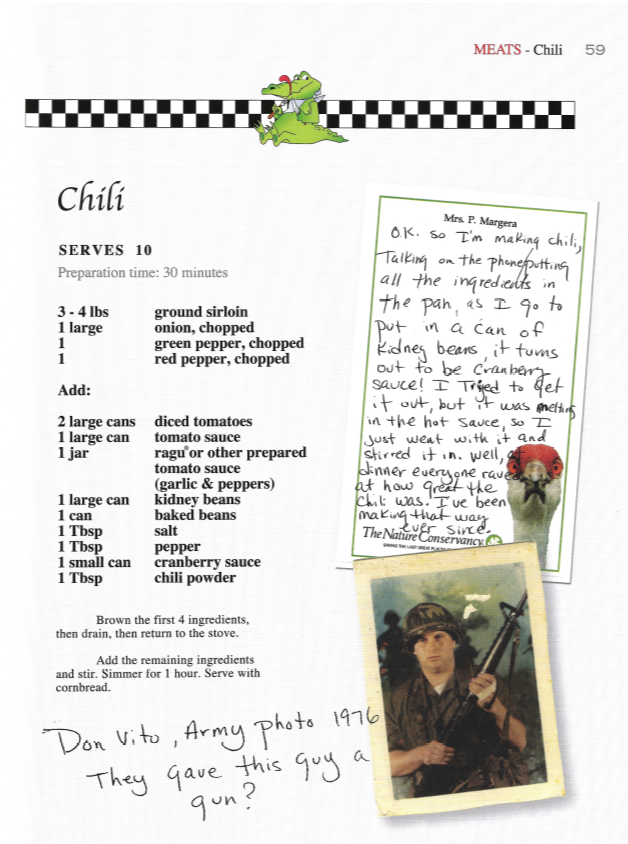 MEATS - Chili 59
Chili
SERVES 10
Preparation time: 30 minutes
3 - 4 lbs ground sirloin
1 large onion, chopped
1 green pepper, chopped
1 red pepper, chopped
Add:
2 large cans diced tomatoes
1 large can tomato sauce
1 jar ragu® or other prepared
tomato sauce
(garlic & peppers)
1 large can kidney beans
1 can baked beans
1 Tbsp salt
1 Tbsp pepper
1 small can cranberry sauce
1 Tbsp chili powder
Brown the first 4 ingredients,
then drain, then return to the stove.
Add the remaining ingredients
and stir. Simmer for 1 hour. Serve with
cornbread.
Mrs. P. Margera
O.K. so I'm making chili,
Talking on the phone/putting
all the ingredients in
the pan, as I go to
put in a can of
kidney beans, it turns
out to be Cranberry
sauce! I Tried to get
it out, but it was melting
in the hot sauce, so I
just went with it and
stirred it in. well, at
dinner everyone raved
at how great the
Chili was. I've been
making that way
ever since.
The Nature Conservancy
SAVING THE LAST GREAT PLACES
Don Vito, Army photo 1976
They gave this guy a
gun?